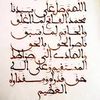 اللهم صل على سيدنا
محمد الفاتح لما أغلق
والخاتم لما سبق
ناصر الحق بالحق
والهادي إلى صراطك
المستقيم وعلى آله
حق قدره ومقداره
العظيم